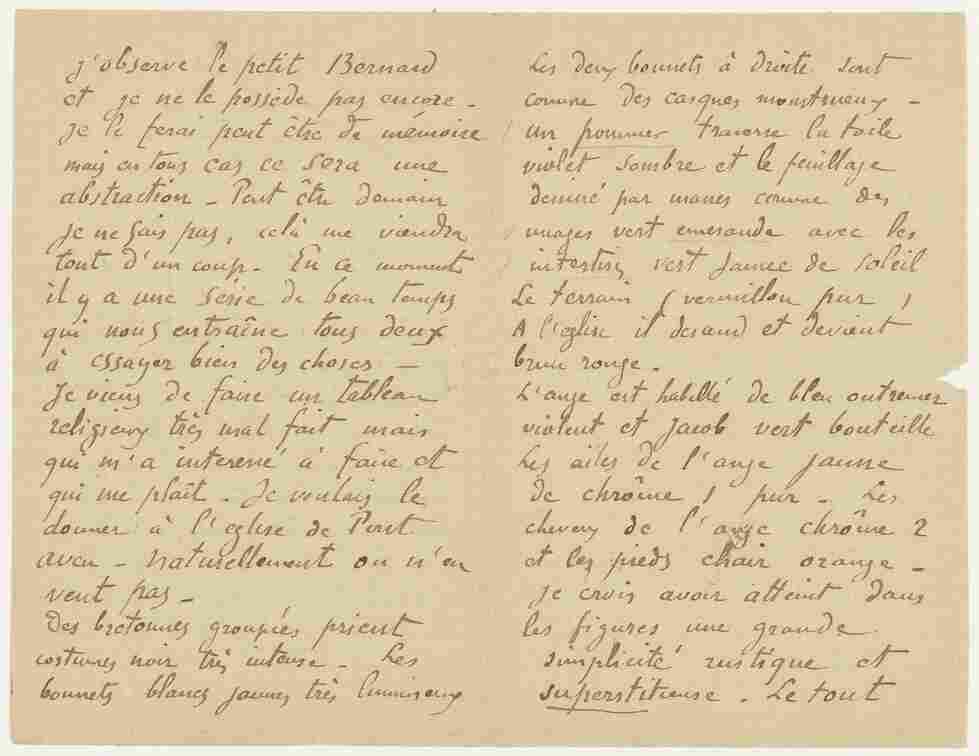 j'observe le petit Bernard
et je ne le possède pas encore -
je le ferai peut être de mémoire
mais en tous cas ce sera une
abstraction - Peut être demain
je ne sais pas, celà me viendra
tout d'un coup. En ce moment
il y a une série de beau temps
qui nous entraîne tous deux
à essayer bien des choses -
Je viens de faire un tableau
religieux très mal fait mais
qui m'a interessé à faire et
qui me plaît. Je voulais le
donner à l'église de Pont
aven - naturellement on n'en
veut pas -
Des bretonnes groupées prient
costumes noir très intense - Les
bonnets blancs jaunes très lumineux
Les deux bonnets à droite sont
comme des casques monstrueux -
un pommier traverse la toile
violet sombre et le feuillage
dessiné par masses comme des
nuages vert emeraude avec les
interstices vert jaune de soleil
Le terrain (vermillon pur)
A l'église il descend et devient
brun rouge.
L'ange est habillé de bleu outremer
violent et Jacob vert bouteille
Les ailes de l'ange jaune
de chrôme 1 pur - Les
cheveux de l'ange chrôme 2
et les pieds chair orange -
Je crois avoir atteint dans
les figures une grande
simplicité rustique et
superstitieuse. Le tout